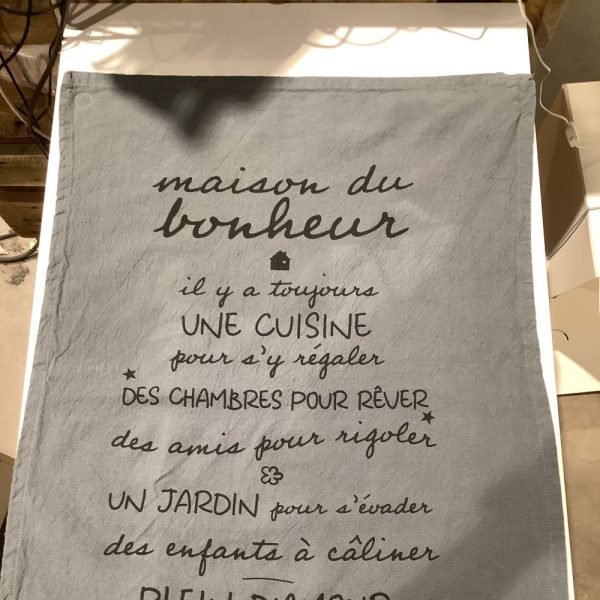 maison du
bonheur
il y a toujours
UNE CUISINE
pour s'y régaler
DES CHAMBRES POUR RÊVER
des amis pour rigoler
UN JARDIN pour s'évader
des enfants à câliner
PLEIN D'AMOUR